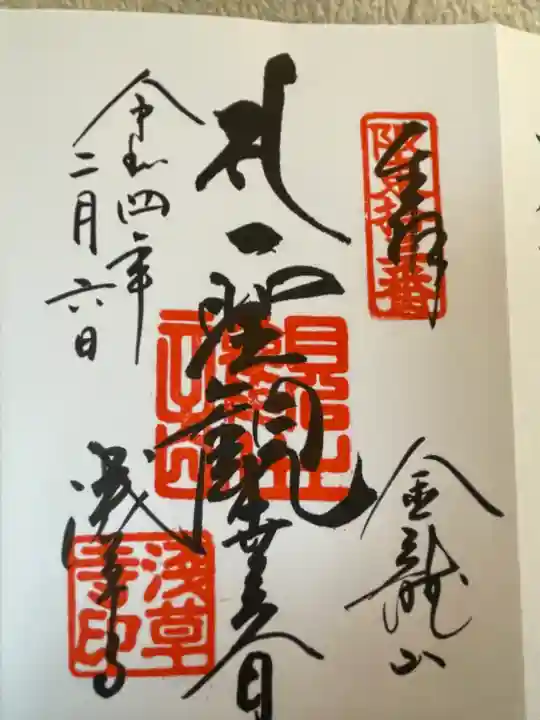 奉拝
阪東拾三番
金龍山
聖観世音
令和四年
二月六日
浅草寺
浅草
寺印